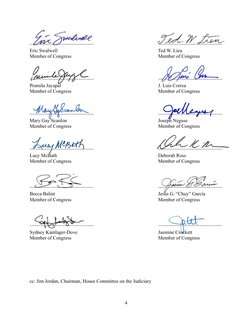 Eric Swalwell
Ted W. Lieu
Eric Swalwell
Member of Congress
Ted W. Lieu
Member of Congress
Pramila Jayapal
Member of Congress
J. Luis Correa
Member of Congress
Mary Gay Scanlon
Mary Gay Scanlon
Member of Congress
Joe Neguse
Joseph Neguse
Member of Congress
Lucy McBath
Lucy McBath
Member of Congress
Deborah Ross
Member of Congress
Becca Balint
Member of Congress
Jesús G. "Chuy" García
Member of Congress
Sydney Kamlager-Dove
Member of Congress
Jasmine Crockett
Member of Congress
cc: Jim Jordan, Chairman, House Committee on the Judiciary
4